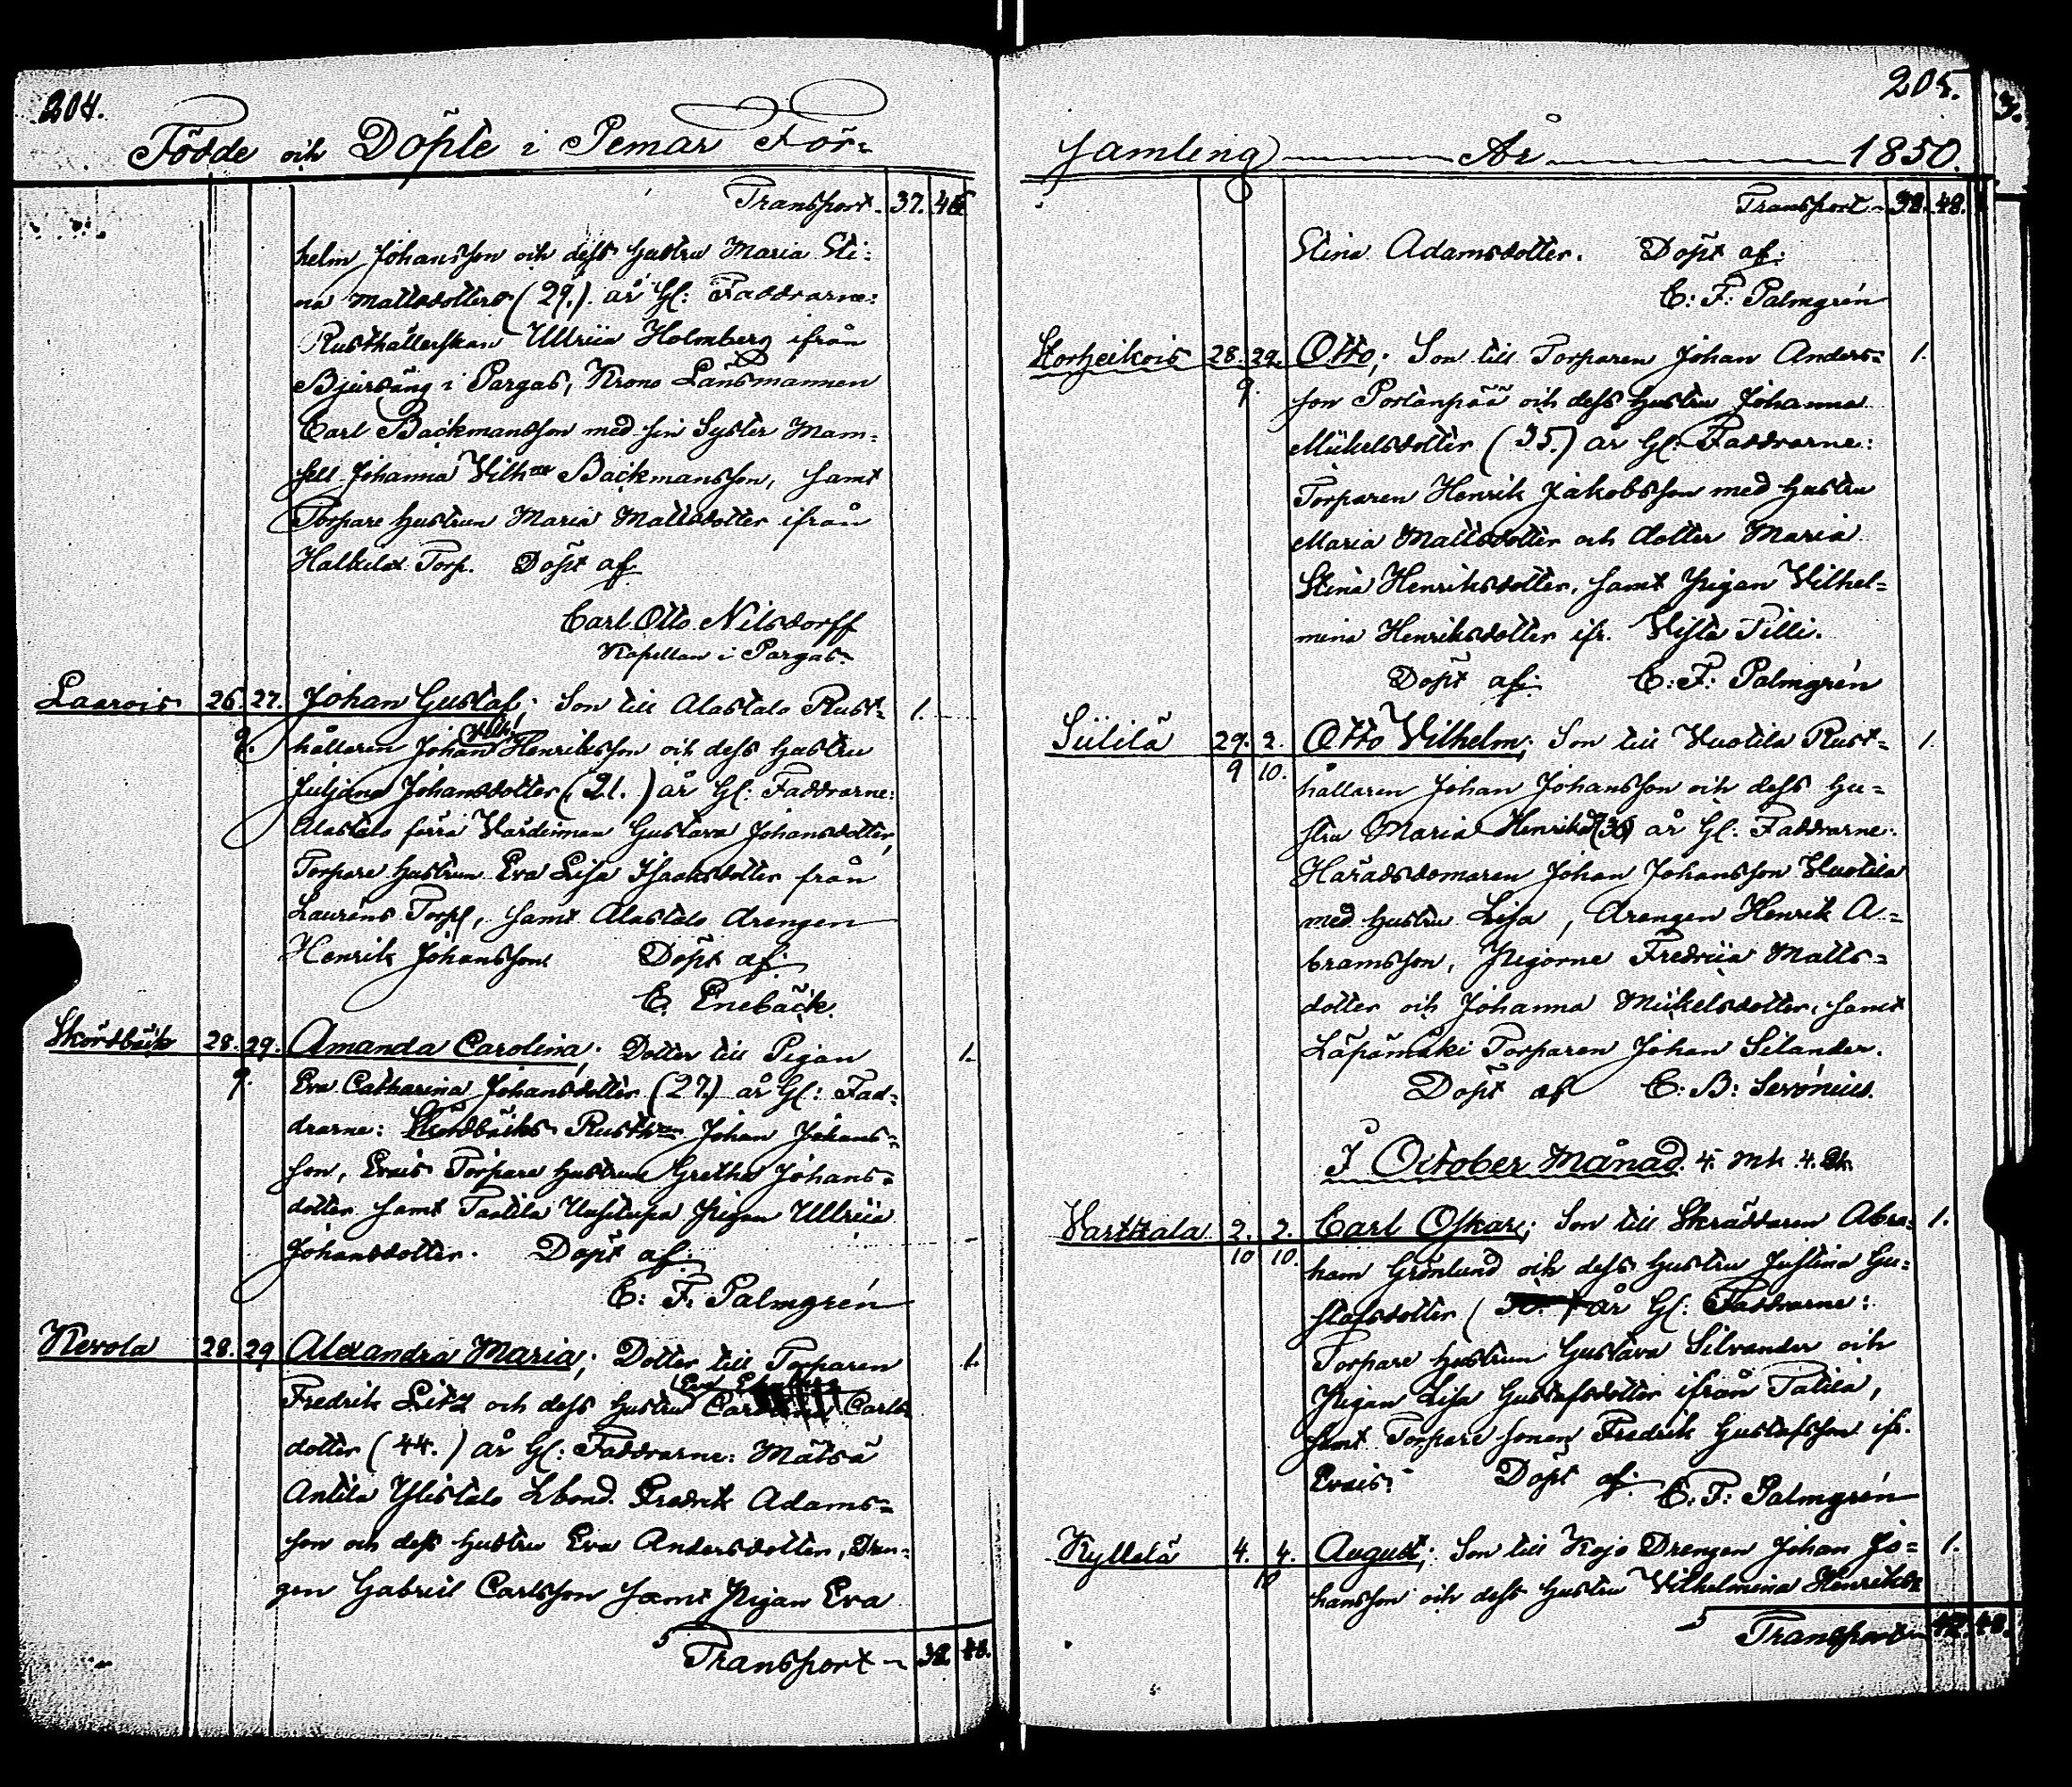 204.
Födde och Döpte i Pemar För-
Transport - 37. 46
helm Johansson och dess hustru Maria Sti-
na Mattsdotter (29.) år Gl: Faddrarne:
Rusthållerskan Ullrica Holmberg ifrån
Bjursäng i Pargas, Krono Länsmannen
Carl Backmansson med sin Syster Mam-
sell Johanna Vilh:na Backmansson, samt
Torpare hustrun Maria Mattsdotter ifrån
Torp. Döpt af
Carl Otto Nilsdorff
Kapellan i Pargas.
Laurois 26. 27. Johan Gustaf; Son till Alastalo Rust- 1.
9. hållaren Johan Henriksson och dess hustru
Juljana Johansdotter (21.) år Gl: Faddrarne:
Alastalo förra Värdinnan Gustava Johansdotter,
Torpare hustrun Eva Lisa Isaaksdotter från
Lauröns Torp, samt Alastalo drengen
Henrik Johansson Döpt af:
C. Enebäck.
Skördbäck 28. 29. Amanda Carolina; Dotter till Pigan 1.
9. Eva Catharina Johansdotter (27.) år Gl: Fad-
drarne: Skördbäcks Rusth:n Johan Johans-
son, Evais Torpare hustrun Gretha Johans-
dotter samt Tactila Pigan Ullrica
Johansdotter. Döpt af:
C: F: Palmgrén
Kevola 28. 29 Alexandra Maria; Dotter till Torparen 1.
Fredrik Litz och dess hustru Carls-
dotter (44.) år Gl: Faddrarne: Mätsä
Antila Ylistalo Lbond. Fredrik Adams-
son och dess hustru Eva Andersdotter, Dren-
gen Gabriel Carlsson samt Pigan Eva
5 Transport - 38. 48.
205.
samling År 1850.
Transport - 38. 48.
Stina Adamsdotter. Döpt af:
C: F: Palmgrén
Storheikois 28. 29. Otto; Son till Torparen Johan Anders- 1.
9. son Portanpää och dess hustru Johanna
Mickelsdotter (35.) år Gl: Faddrarne:
Torparen Henrik Jakobsson med hustru
Maria Mattsdotter och dotter Maria
Stina Henriksdotter, samt Pigan Vilhel-
mina Henriksdotter ifr. Vista Pilli.
Döpt af: C: F: Palmgrén
Siililä 29. 2. Otto Vilhelm; Son till Vuotila Rust- 1.
9 10. hållaren Johan Johansson och dess hu-
stru Maria Henriksd (36) år Gl: Faddrarne:
Häradsdomaren Johan Johansson Vuotila
med hustru Lisa, drengen Henrik A-
bramsson, Pigorne Fredrica Matts-
dotter och Johanna Mickelsdotter, samt
Läpämäki Torparen Johan Silander.
Döpt af C: B: Serónius.
I October Månad. 4. Mk. 4.
Varttala 2. 2. Carl Oskar; Son till Skräddaren Abra- 1.
10 10. ham Grönlund och dess hustru Justina Gu-
stafsdotter ( år Gl: Faddrarne:
Torpare hustrun Gustava Silvander och
Pigan Lisa Gustafsdotter ifrån Tatila,
samt Torpare sonen Fredrik Gustafsson ifr.
Evais. Döpt af: C: F: Palmgrén
Kyllelä 4. 4. August; Son till Kojo Drengen Johan Jo- 1.
10 hansson och dess hustru Vilhelmina Henriks-
5 Transport - 42. 48.